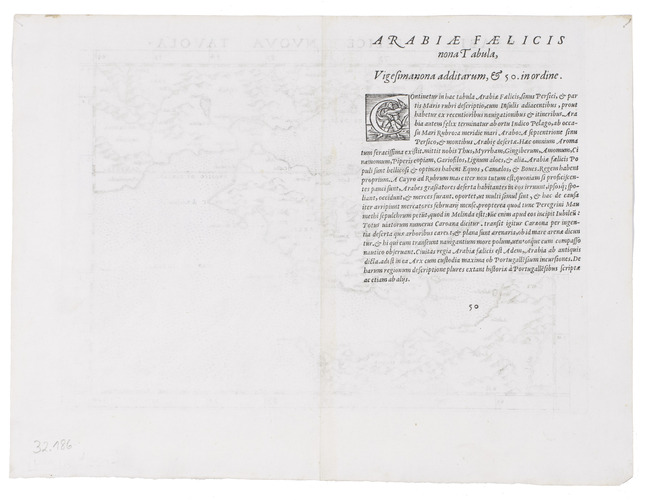 ARABIÆ FÆLICIS
nona Tabula,
Vigesimanona additarum, & 50. in ordine.
COntinetur in hac tabula Arabiæ Fælicis, sinus Persici, & par
tis Maris rubri descriptio, cum Insulis adiacentibus, prout
habetur ex recentioribus nauigationibus & itineribus. Ara
bia autem fælix terminatur ab ortu Indico Pelago, ab occa
so Mari Rubro, a meridie mari Arabco, A septentrione sinu
Persico, & montibus Arabiæ desertæ. Hæc omnium Aroma
tum feracissima existit, mittit nobis Thus, Myrrham, Gingiberum, Amomum, Ci
namomum, Piperis copiam, Gariofilos, Lignum aloes, & alia. Arabiæ fælicis Po
puli sunt bellicosi & optimos habent Equos, Camælos, & Boues. Regem habent
proprium. A Cayro ad Rubrum mare iter non tutum est; quoniam si proficiscen
tes pauci sunt, Arabes grassatores deserta habitantes in eos irruunt, ipsosq; spo
liant, occidunt & merces furant, oportet aut multi simul sint, & hac de causa
iter arripiunt mercatores februarij mense, propterea quod tunc Peregrini Mau
methi sepulchrum petut, quod in Melinda est: Nuc enim apud eos incipit Iubileu:
Totus uiatorum numerus Carouna dicitur, transit igitur Carouna per ingen
tia deserta quæ arboribus caret, & plana sunt arenaria, ob id mare arenæ dicun
tur, & hi qui eum transeunt nauigantium more polum, uentosque cum compasso
nautico obseruant. Ciuitas regia Arabiæ fælicis est Adem, Arabia ab antiquis
dicta, adest in ea Arx cum custodia maxima ob Portugallesium incursiones. De
harum regionum descriptione plures extant historiæ à Portugallesibus scriptæ
ac etiam ab alijs.
50
32.186